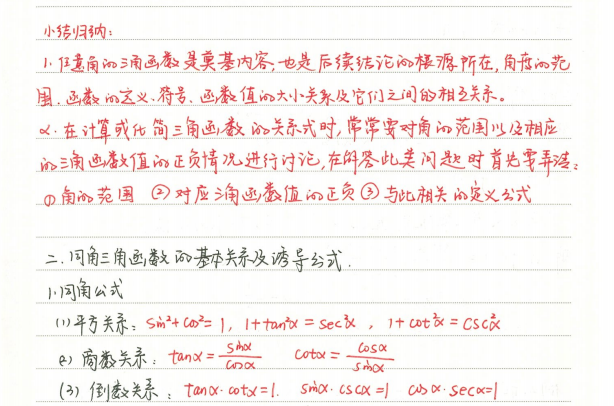 小结归纳:
1. 任意角的三角函数是奠基内容,也是后续结论的根源所在,角度的范
围、函数的定义、符号、函数值的大小关系及它们之间的相互关系。
2. 在计算或化简三角函数的关系式时,常常要对角的范围以及相应
的三角函数值的正负情况进行讨论,在解答此类问题时首先要弄清:
①角的范围 ②对应三角函数值的正负 ③与此相关的定义公式
二.同角三角函数的基本关系及诱导公式.
1.同角公式
(1)平方关系: sin²+cos²=1, 1+tan²α=sec²α, 1+cot²α=csc²α
(2)商数关系: tanα=sinα/cosα cotα=cosα/sinα
(3)倒数关系: tanα·cotα=1. sinα·cscα=1 cosα·secα=1